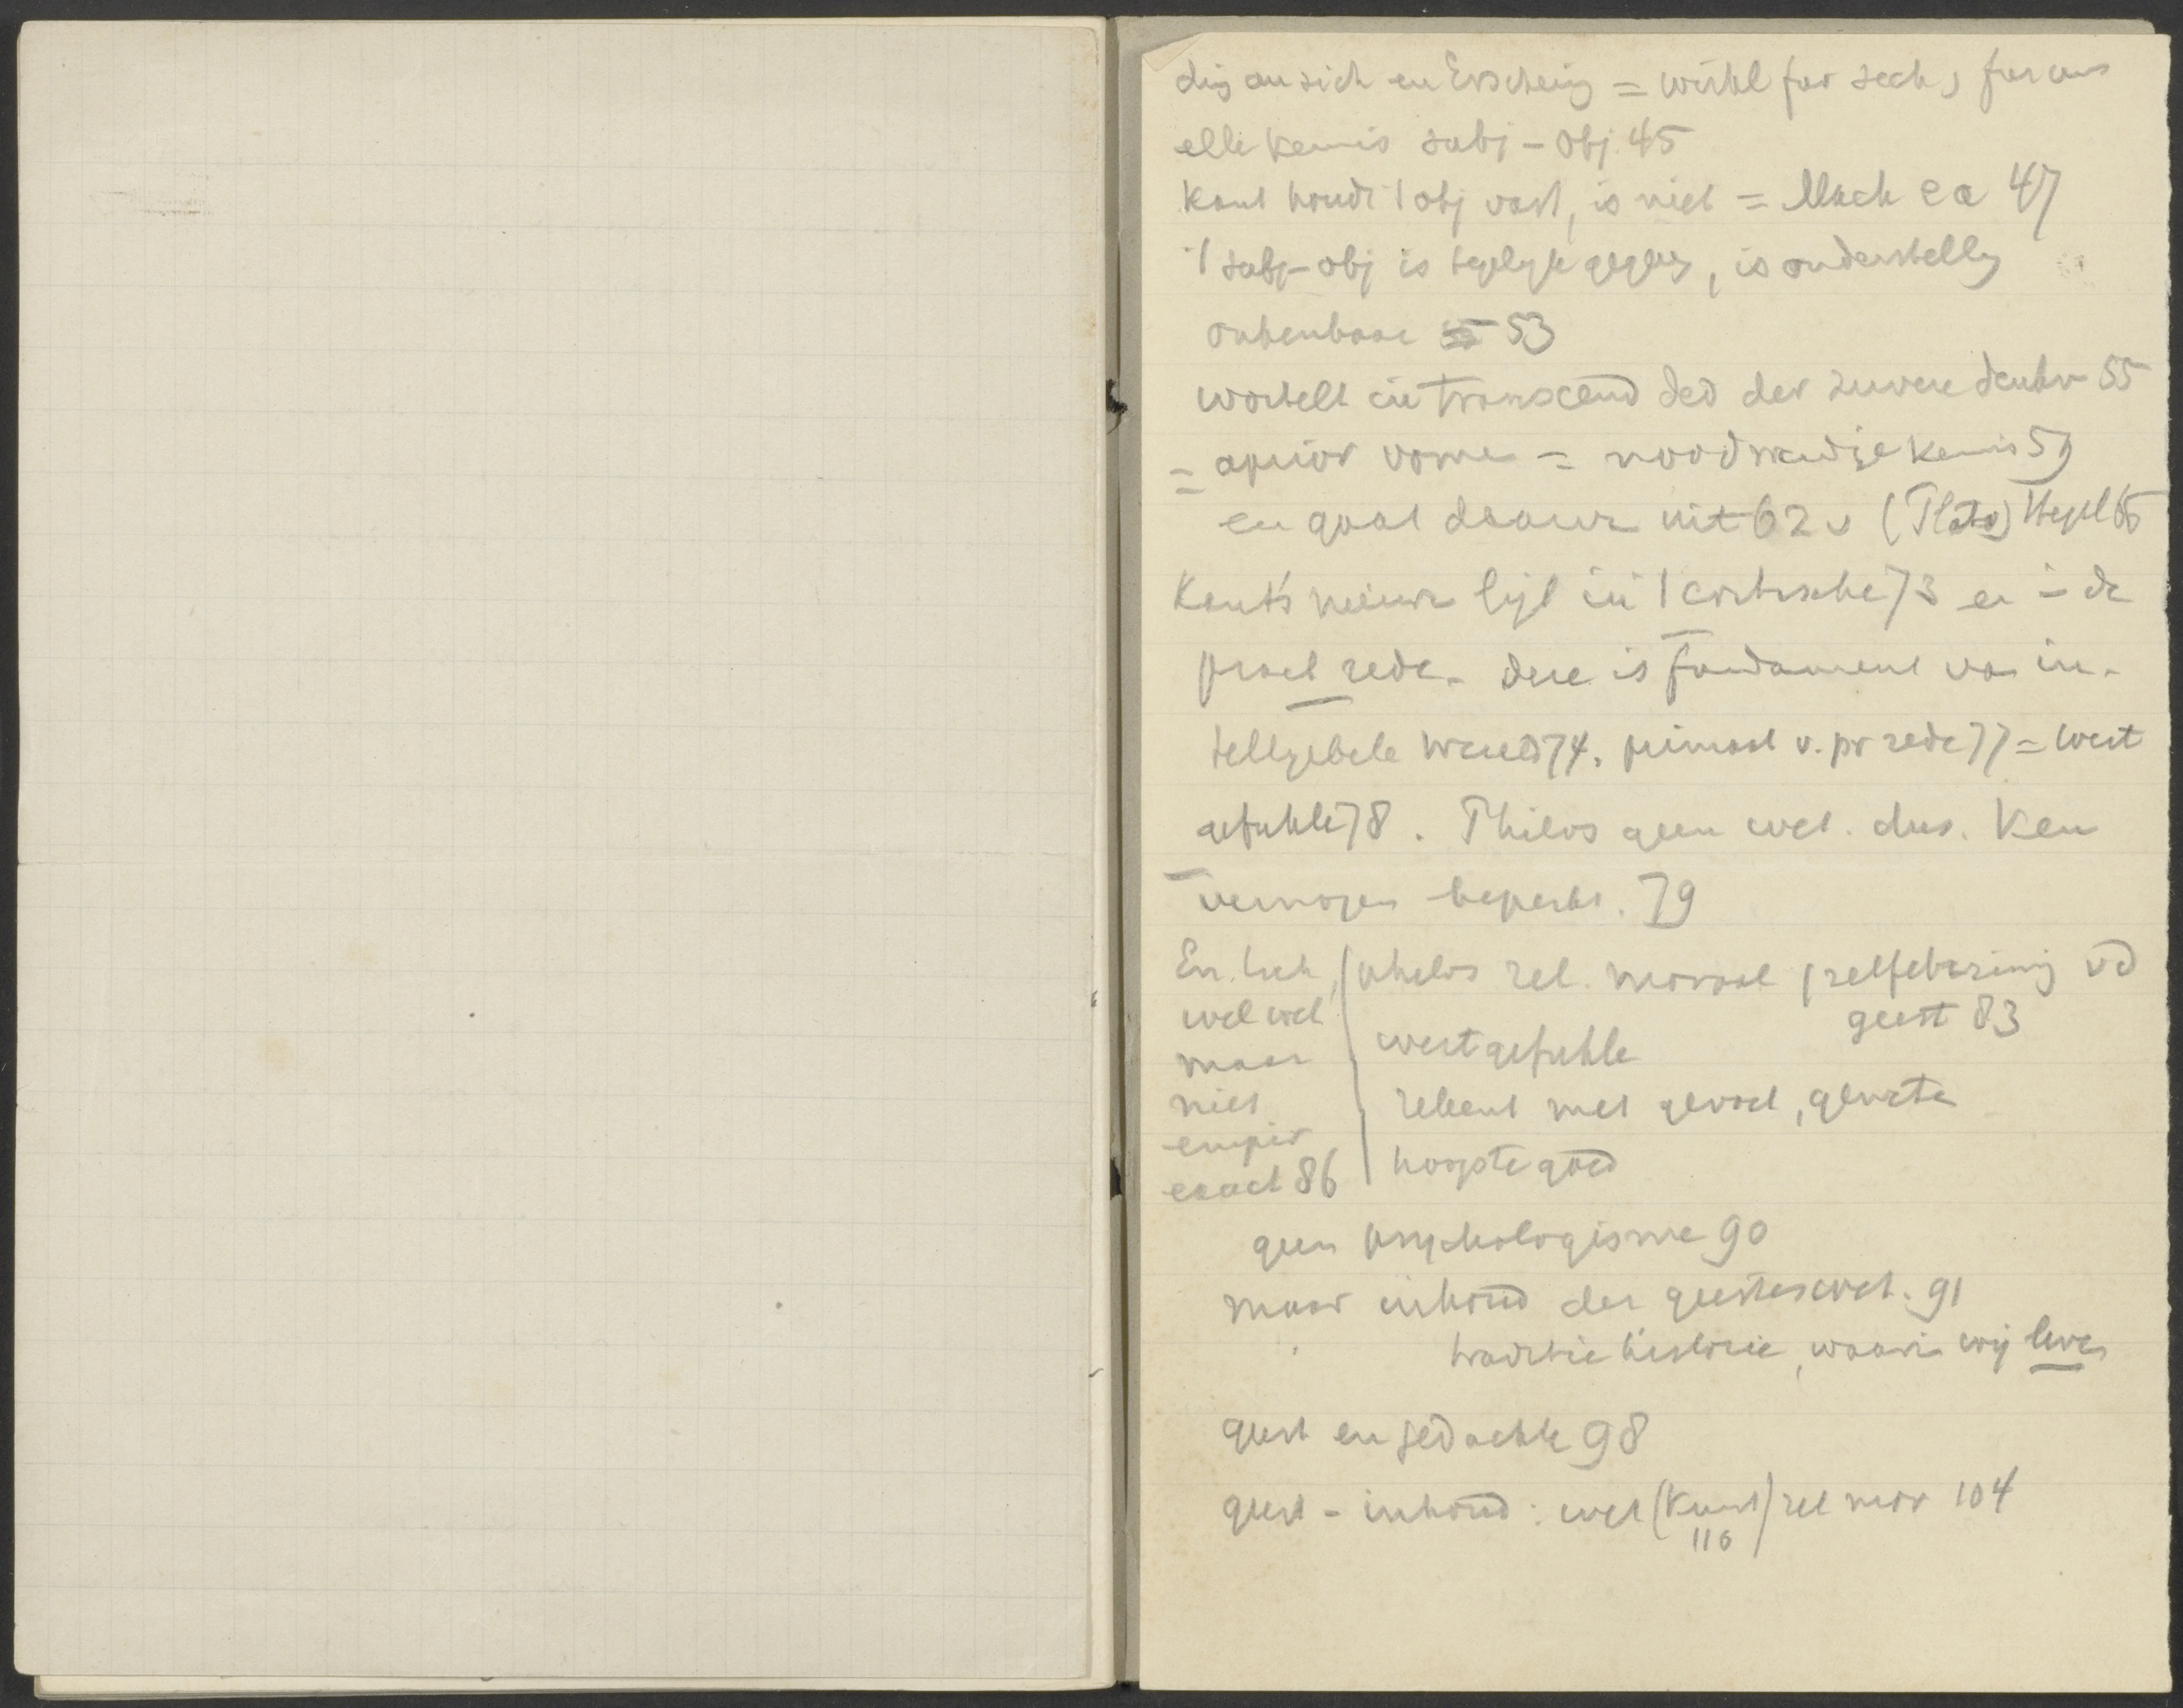 ding an sich en Erscheing = wirkl fur sich, fur uns
elke kennis subj - obj. 45
Kant houdt 't obj vast, is niet = Mach ea 47
't subj-obj is tegelyk gegev, is onderstellg
ontkenbaar 53
wortelt in transcend ded der zuivere denkv 55
= aprior vorme = noodwendige kennis 59
en gaat daarvr uit 62 v (Plato) Hegel 65
Kant's nieuwe ligt in 't critische 73 en in de
pract rede. deze is fundament van in-
telligebele wereld 74. primaat v. pr rede 77 = wert
gefuhle 78. Philos geen wet. dus. Ken
vermogen beperkt. 79
En toch, | philos rel. moraal | zelfebezinnig vd
wel wet geest 83
maar wertgefuhle
niet rekent met gevoel, geweten
empir
exact 86 hoogste goed
geen psychologisme 90
maar inhoud der geesteswet. 91
traditie historie, waarin wij leven
geest en gedachte 98
geest - inhoud: wet (Kunst) rel mor 104
116